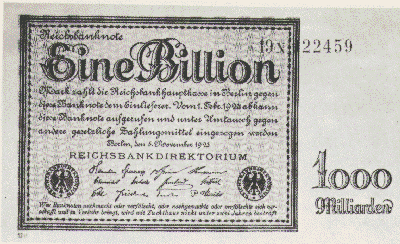 Reichsbanknote
19X 22459
Eine Billion
Mark zahlt die Reichsbankhauptkasse in Berlin gegen
diese Banknote dem Einlieferer. Vom 1. Febr. 1924 ab kann
diese Banknote aufgerufen und unter Umtausch gegen
andere gesetzliche Zahlungsmittel eingezogen werden
Berlin, den 5. November 1923
REICHSBANKDIREKTORIUM
Wer Banknoten nachmacht oder verfälscht, oder nachgemachte oder verfälschte sich ver-
schafft und in Verkehr bringt, wird mit Zuchthaus nicht unter zwei Jahren bestraft
1000
Milliarden